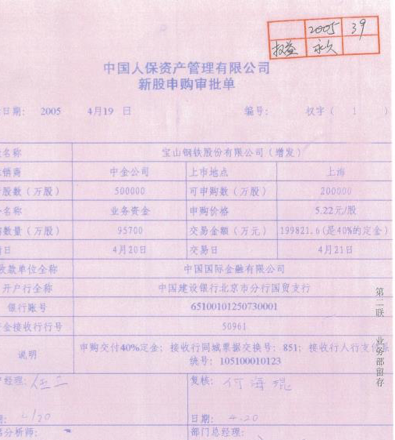 2005 39
权益 永久
中国人保资产管理有限公司
新股申购审批单
日期： 2005 4月19日 编号： 权字（ ）
名称 宝山钢铁股份有限公司（增发）
销商 中金公司 上市地点 上海
股数（万股） 500000 可申购数（万股） 200000
名称 业务资金 申购价格 5.22元/股
数量（万股） 95700 交易金额（万元） 199821.6(是40%的定金)
日 4月20日 交易日 4月21日
收款单位全称 中国国际金融有限公司
开户行全称 中国建设银行北京市分行国贸支行
银行账号 65100101250730001
金接收行行号 50961
说明 申购交付40%定金；接收行同城票据交换号：851；接收行人行支付系
统号：105100010123
经理： 复核：
期： 4/20 日期： 4.20
分析师： 部门总经理：
第二联 业务部留存